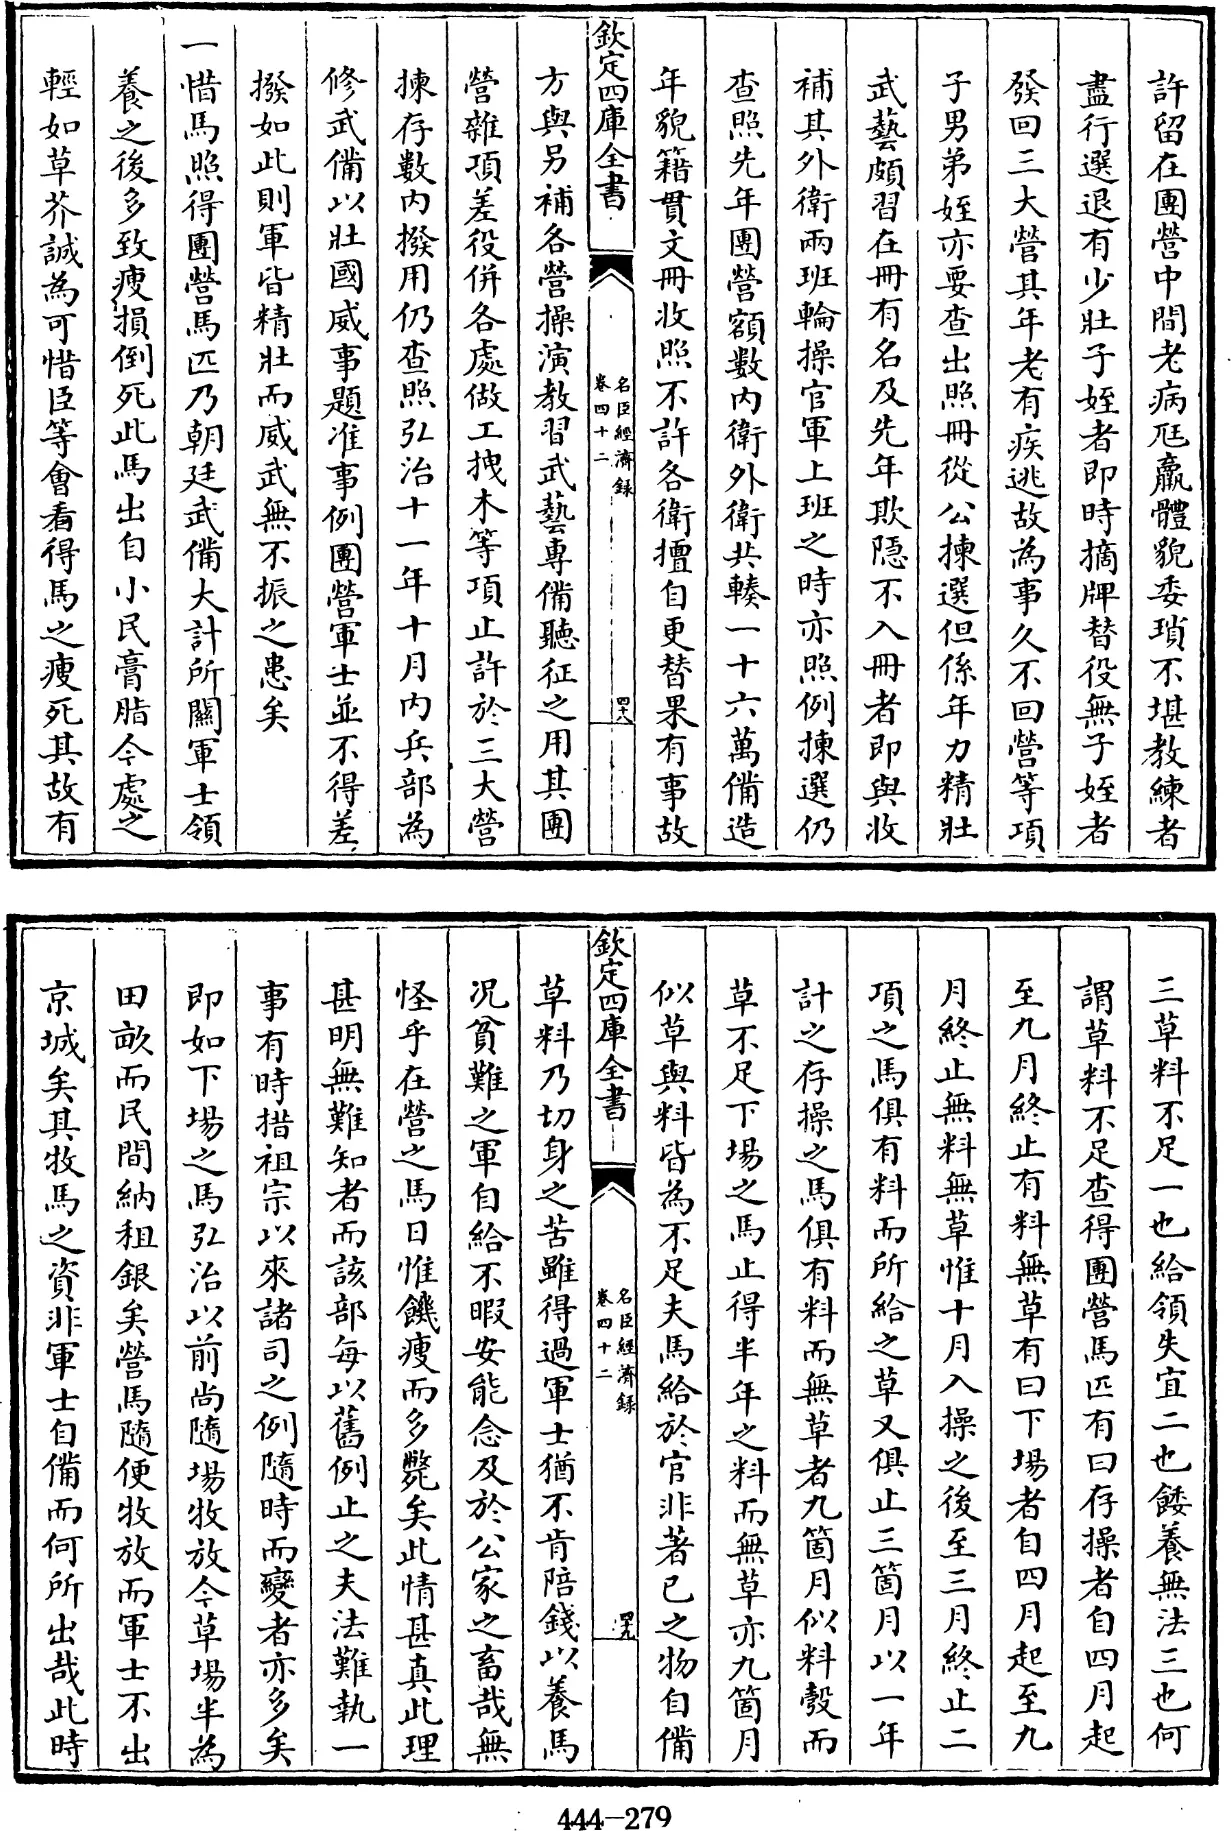 許留在團營中間老病尫羸體貌委瑣不堪教練者
盡行選退有少壯子姪者即時摘牌替役無子姪者
發回三大營其年老有疾逃故為事久不回營等項
子男弟姪亦要查出照冊從公揀選但係年力精壯
武藝頗習在冊有名及先年欺隱不入冊者即與收
補其外衛兩班輪操官軍上班之時亦照例揀選仍
查照先年團營額數内衛外衛共輳一十六萬備造
年貌籍貫文冊收照不許各衛擅自更替果有事故
欽定四庫全書
名臣經濟録
卷四十二
四十八
方與另補各營操演教習武藝專備聽征之用其團
營雜項差役併各處做工拽木等項止許於三大營
揀存數内撥用仍查照弘治十一年十月内兵部為
修武備以壯國威事題准事例團營軍士並不得差
撥如此則軍皆精壯而威武無不振之患矣
一惜馬照得團營馬匹乃朝廷武備大計所關軍士領
養之後多致瘦損倒死此馬出自小民膏脂今處之
輕如草芥誠為可惜臣等會看得馬之瘦死其故有
三草料不足一也給領失宜二也餧養無法三也何
謂草料不足查得團營馬匹有曰存操者自四月起
至九月終止有料無草有曰下場者自四月起至九
月終止無料無草惟十月入操之後至三月終止二
項之馬俱有料而所給之草又俱止三箇月以一年
計之存操之馬俱有料而無草者九箇月似料豰而
草不足下場之馬止得半年之料而無草亦九箇月
似草與料皆為不足夫馬給於官非著已之物自備
欽定四庫全書
名臣經濟録
卷四十二
四十九
草料乃切身之苦雖得過軍士猶不肯陪錢以養馬
况貧難之軍自給不暇安能念及於公家之畜哉無
怪乎在營之馬日惟饑瘦而多斃矣此情甚真此理
甚明無難知者而該部每以舊例止之夫法難執一
事有時措祖宗以來諸司之例隨時而變者亦多矣
即如下場之馬弘治以前尚隨場牧放今草場半為
田畝而民間納租銀矣營馬隨便牧放而軍士不出
京城矣其牧馬之資非軍士自備而何所出哉此時
444-279